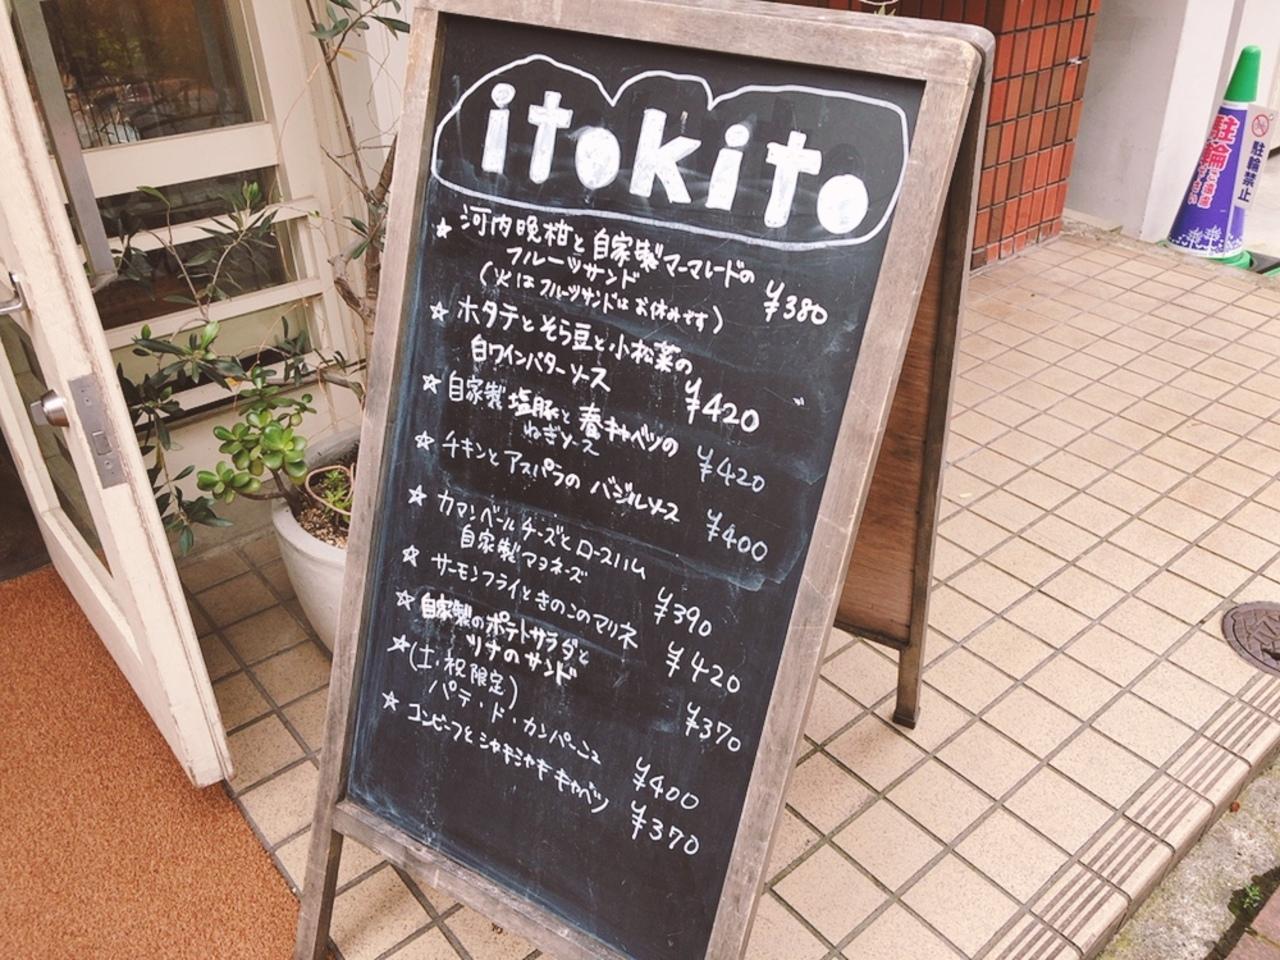 itokito
☆ 河内晩柑と自家製マーマレードの
フルーツサンド ¥380
(火はフルーツサンドはお休みです)
☆ ホタテとそら豆と小松菜の
白ワインバターソース ¥420
☆ 自家製塩豚と春キャベツの
ねぎソース ¥420
☆ チキンとアスパラの バジルソース ¥400
☆ カマンベールチーズとロースハム
自家製マヨネーズ ¥390
☆ サーモンフライときのこのマリネ ¥420
☆ 自家製のポテトサラダと
ツナのサンド ¥370
☆ (土・祝限定)
パテ・ド・カンパーニュ ¥400
☆ コンビーフとシャキシャキキャベツ ¥370
駐輪禁止
駐輪ご遠慮